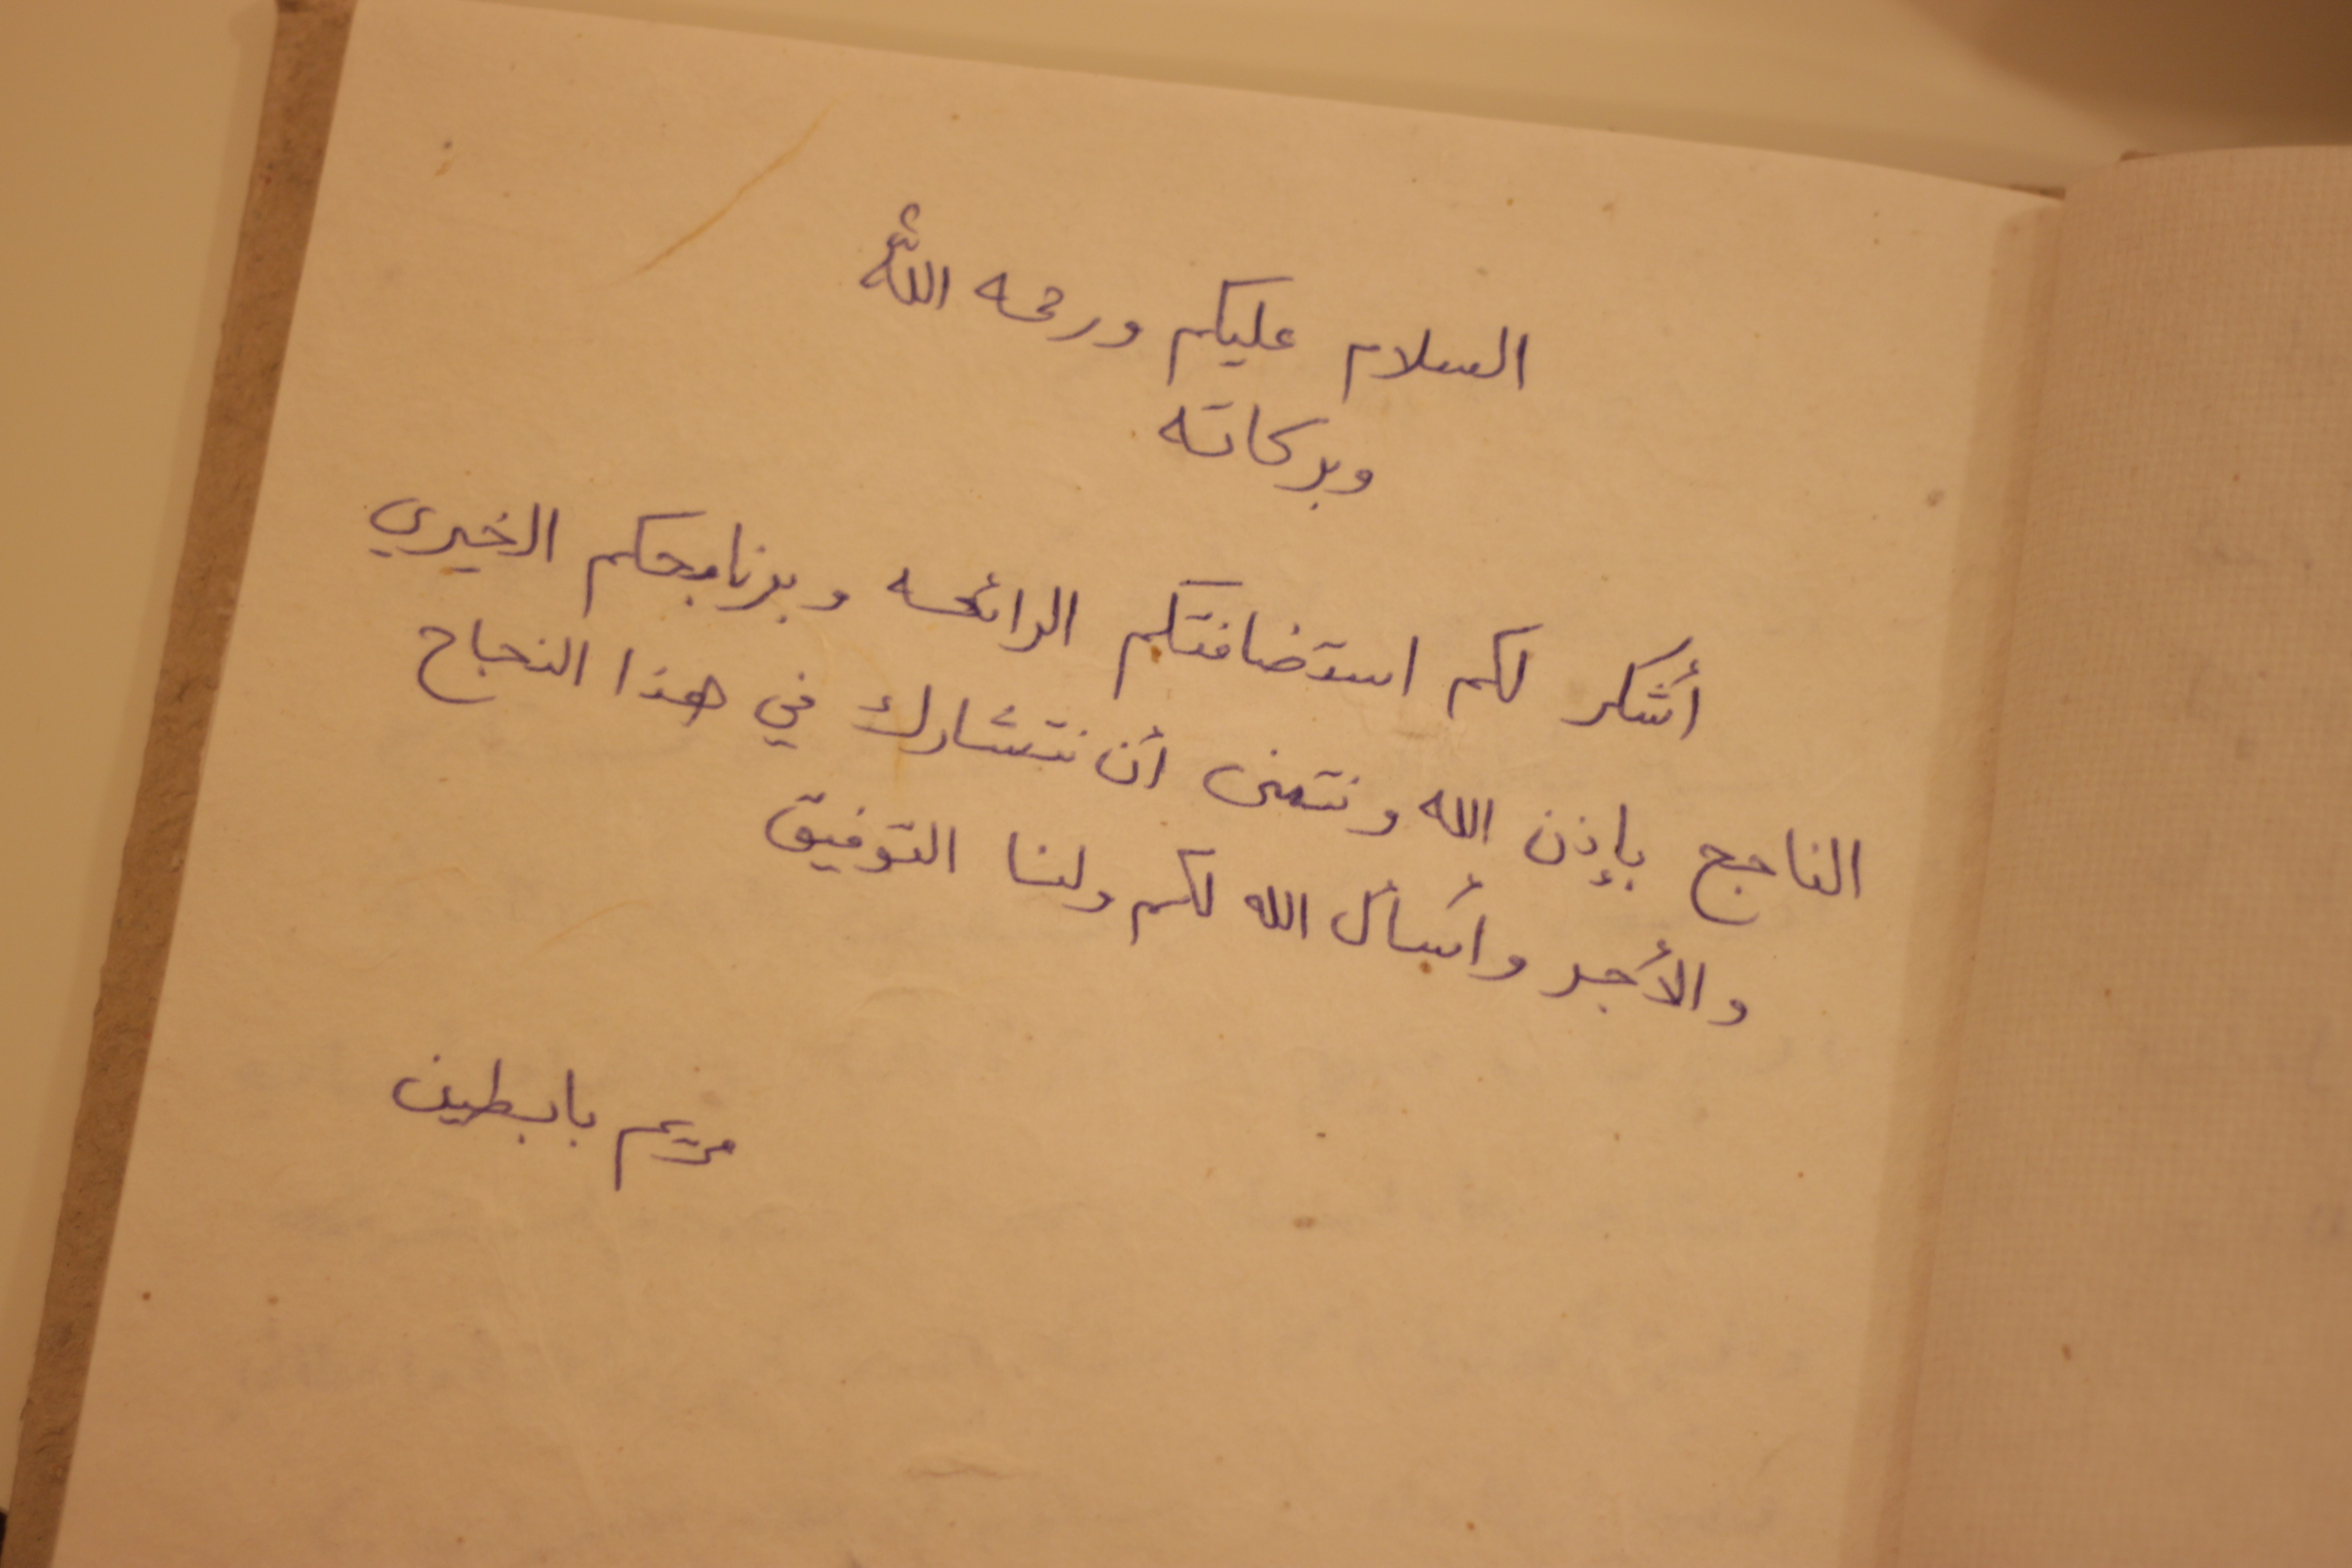 السلام عليكم ورحمه الله
وبركاته
أشكر لكم استضافتكم الرائعه وبرنامجكم الخيري
الناجح بإذن الله ونتمنى أن نتشارك في هذا النجاح
والأجر وأسأل الله لكم ولنا التوفيق
مريم بابطين